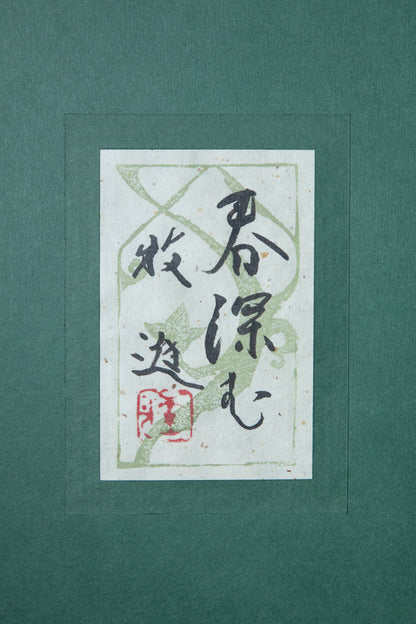 春深む
牧遊